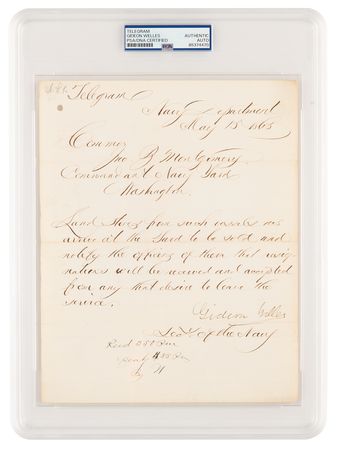 TELEGRAM
GIDEON WELLES
PSA/DNA CERTIFIED
AUTHENTIC
AUTO
85374470
Telegram
Navy Department
May 15 1865
Commo
Jno B Montgomery
Commandant Navy Yard
Washington.
Land Stores from such vessels as
arrive at the Yard to be sold and
notify the officers of them that resig-
nations will be received and accepted
from any that desire to leave the
service.
Gideon Welles
Secy of the Navy
Recd 350 Pm